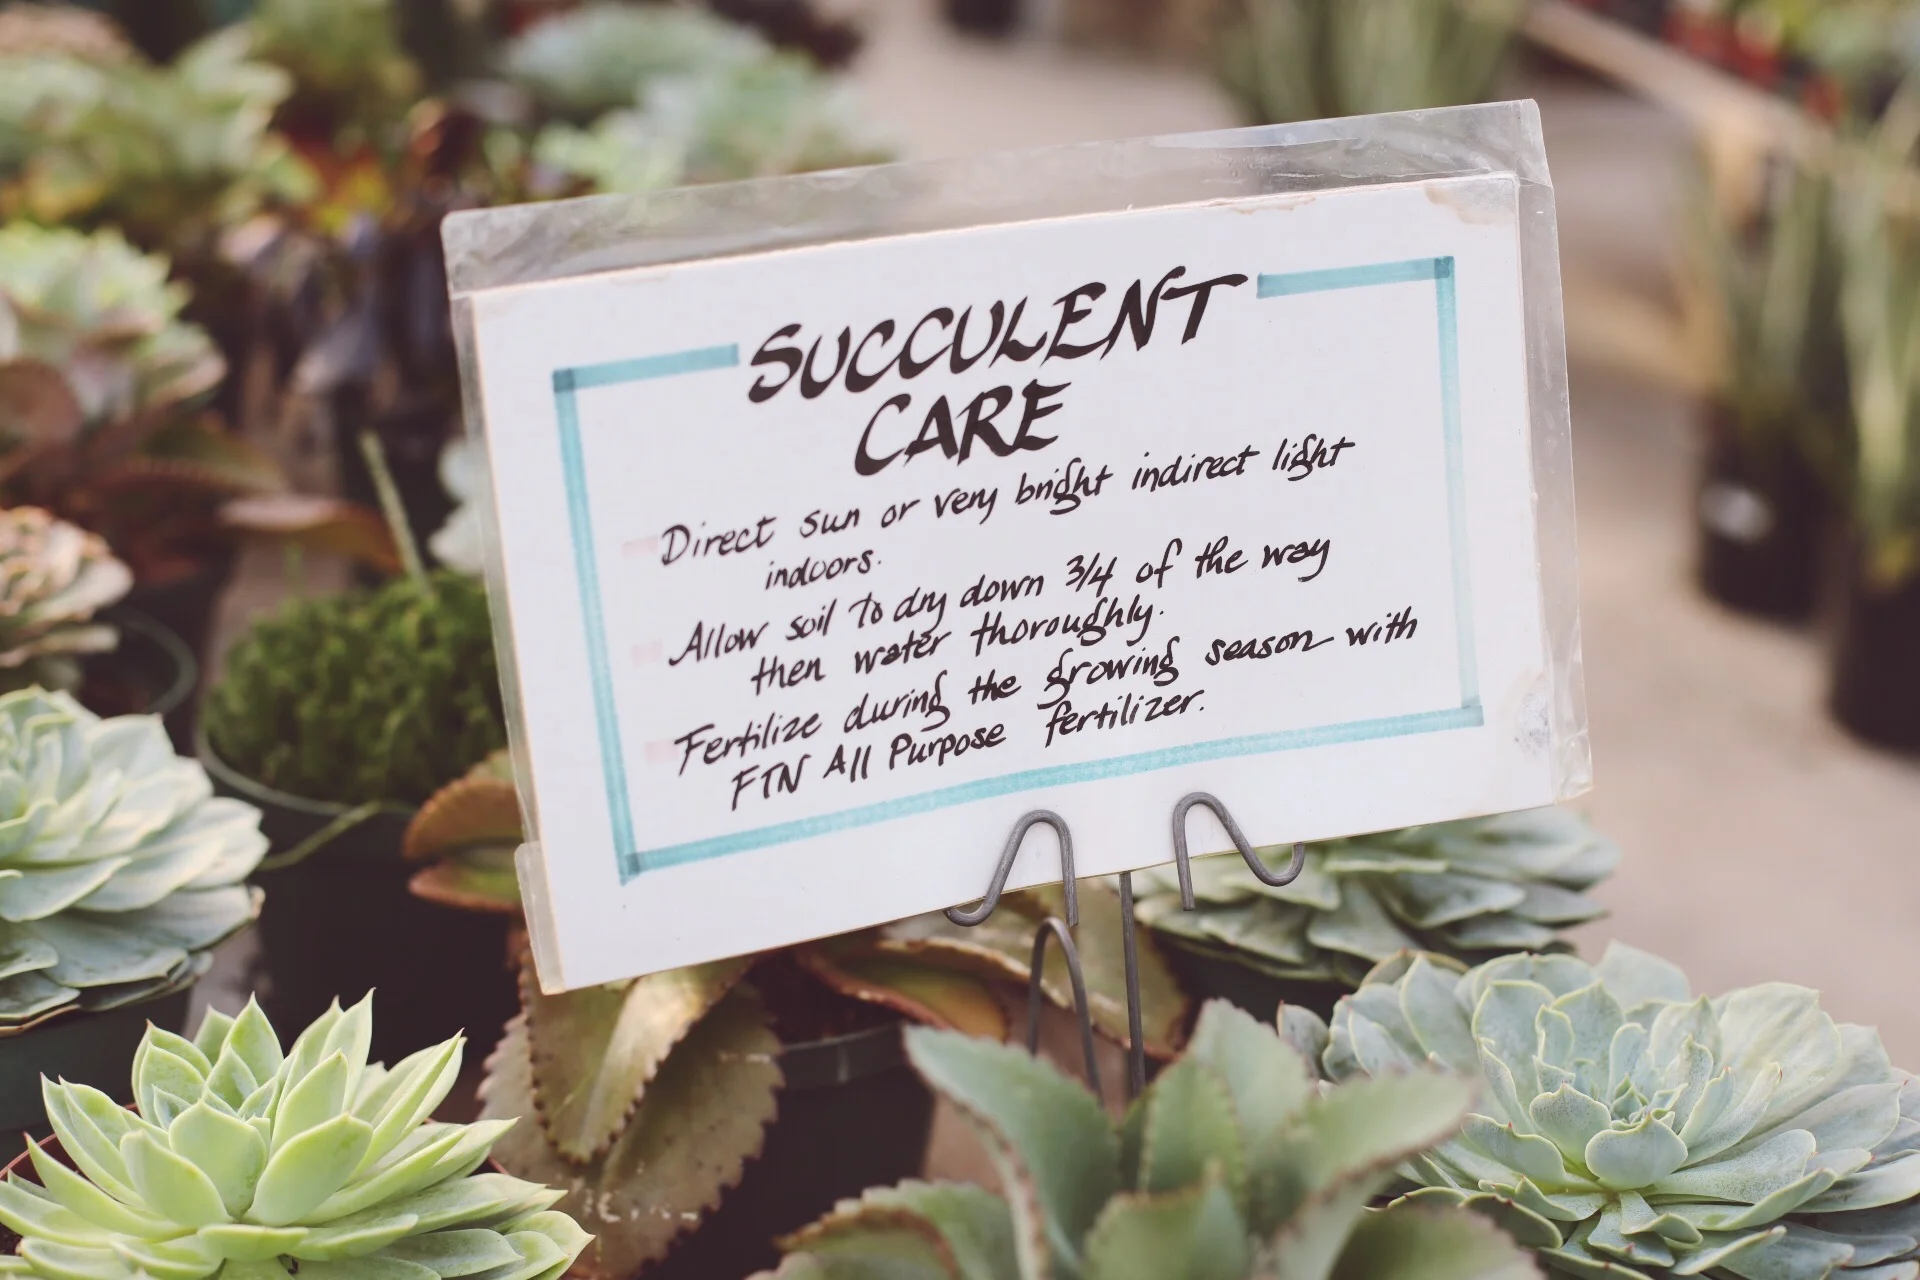 SUCCULENT
CARE
Direct sun or very bright indirect light
indoors.
Allow soil to dry down 3/4 of the way
then water thoroughly.
Fertilize during the growing season with
FTN All Purpose fertilizer.